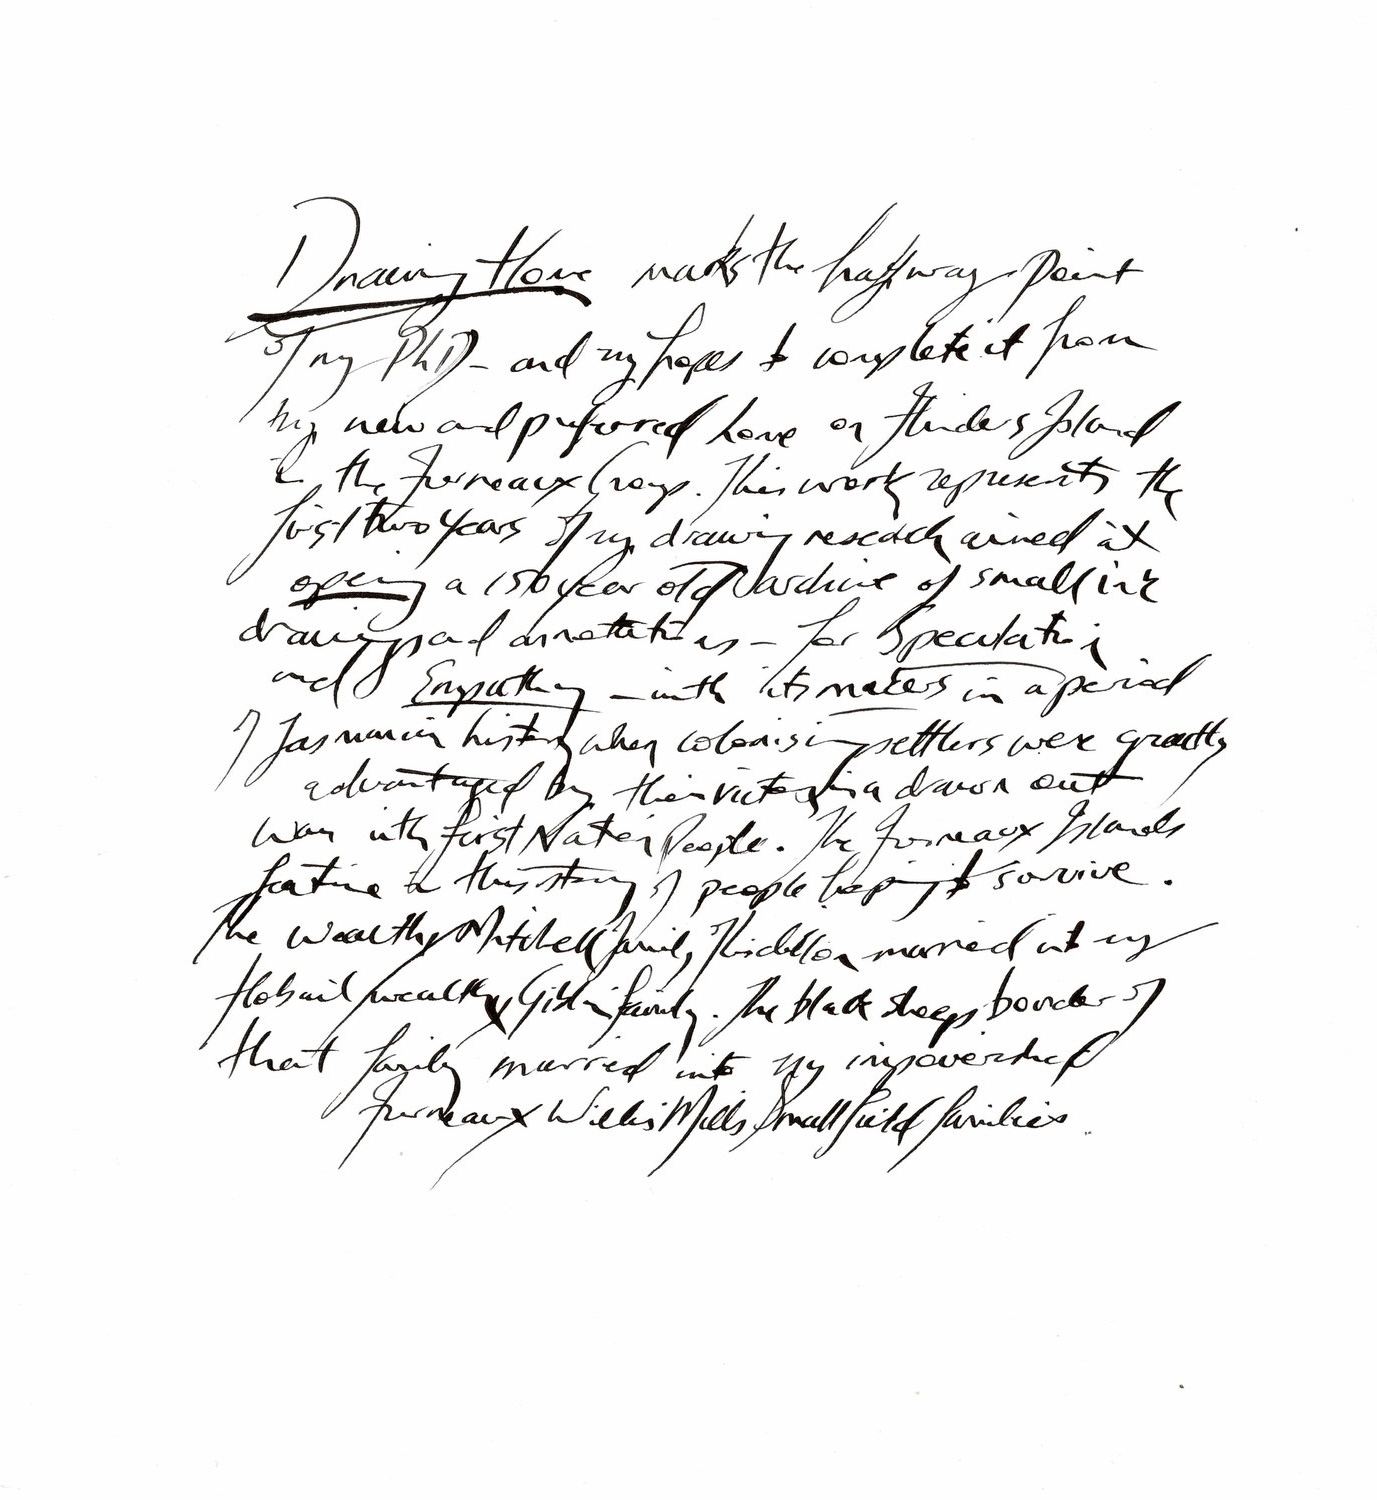 Drawing Home marks the halfway point
of my PhD - and my hopes to complete it from
my new and preferred home on Flinders Island
in the Furneaux Group. This work represents the
first two years of my drawing research aimed at
opening a 150 year old archive of small ink
drawings and annotations - for Speculation
and Empathy - with its makers in a period
of Tasmanian history when colonising settlers were greatly
advantaged by their victory in a drawn out
war with First Nation People. The Furneaux Islands
feature in this story of people hoping to survive.
The wealthy Mitchell family, married into my
Hobart wealthy Giblin family. The black sheep of
that family married into my impoverished
Furneaux Willis Mills Smallfield families